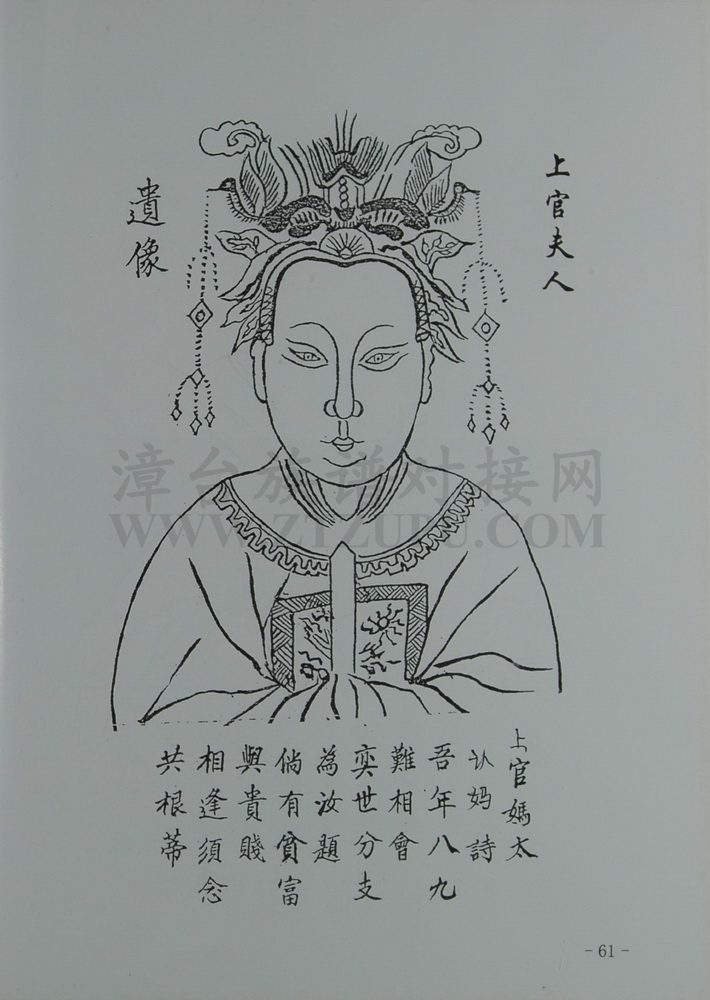 上官夫人
遺像
漳台族谱对接网
WWW.ZTZUPU.COM
上官媽太
认妈詩
吾年八九
難相會
奕世分支
為汝題
倘有貧富
與貴賤
相逢須念
共根蒂
- 61 -